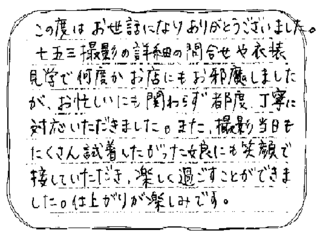 この度はお世話になりありがとうございました。
七五三撮影の詳細の問合せや衣装
見学で何度かお店にもお邪魔しました
が、お忙しいにも関わらず都度、丁寧に
対応いただきました。また、撮影当日も
たくさん試着したがった娘にも笑顔で
接していただき、楽しく過ごすことができま
した。仕上がりが楽しみです。